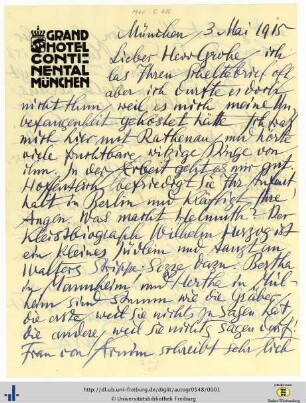 GRAND
HOTEL
CONTI=
NENTAL
MÜNCHEN
München 3 Mai 1915
Lieber Herr Grohe, ich
las Ihren Scheltebrief oft
aber ich durfte es doch
nicht thun, weil es mich meine Un
befangenheit gekostet hätte. Ich war
mich hier mit Rathenau, und hörte
viele furchtbare witzige Dinge von
ihm. In der Arbeit geht es mir gut
Hoffentlich befriedigt Sie Ihr Aufent
halt in Berlin und kräftigt Ihre
Augen. Was macht Helmuth? Der
Kleistbiograph Wilhelm Herzog ist
ein kleines Jüdlein und tanzt an
Walters Strippe. Bertha
in Mannheim und Hertha in Mül-
heim sind stumm wie die Gräber,
die erste, weil sie nichts zu sagen hat,
die andere, weil sie nichts sagen darf!
Frau von schreibt sehr lieb
http://dl.ub.uni-freiburg.de/diglit/autogr0548/0001
© Universitätsbibliothek Freiburg